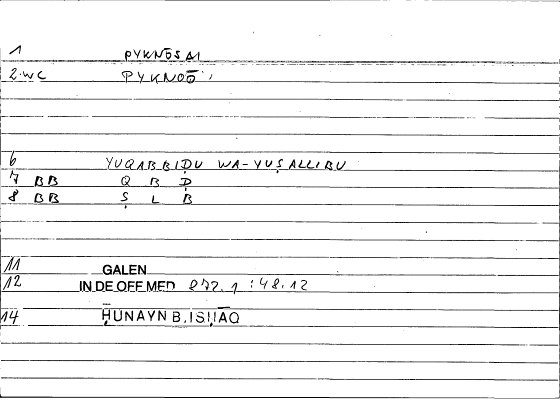 1 PYKNŌSAI
2 WC PYKNOŌ
6 YUQABBIḌU WA-YUṢALLIBU
7 BB Q B Ḍ
8 BB Ṣ L B
11 GALEN
12 IN DE OFF MED 872.1 :48.12
14 ḤUNAYN B. ISḤĀQ